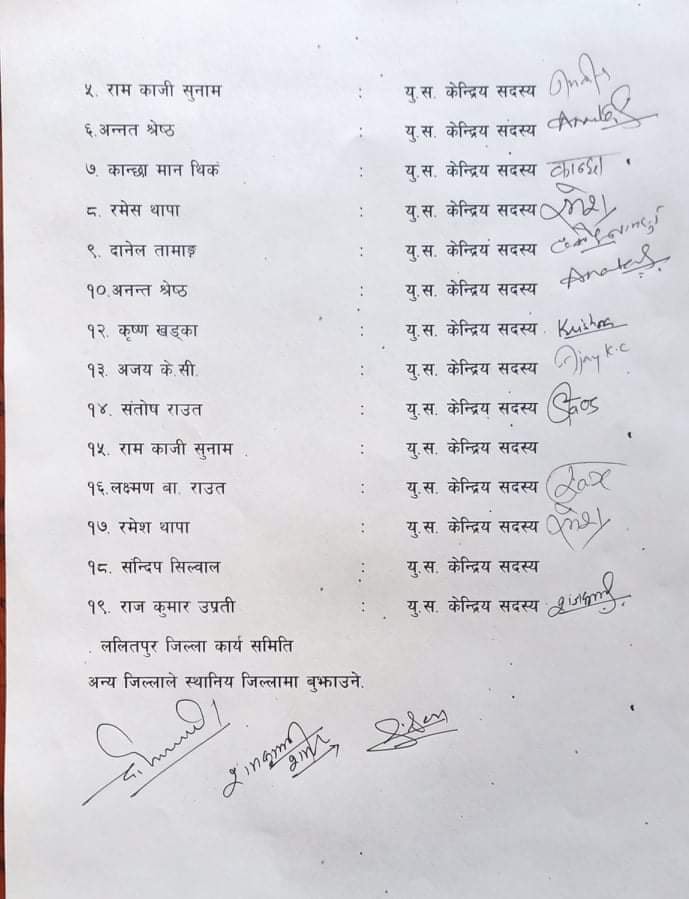 ५. राम काजी सुनाम : यु.स. केन्द्रिय सदस्य
६.अन्नत श्रेष्ठ : यु.स. केन्द्रिय सदस्य
७. कान्छा मान थिकं : यु.स. केन्द्रिय सदस्य कान्छा
८. रमेस थापा : यु.स. केन्द्रिय सदस्य
९. दानेल तामाङ्ग : यु.स. केन्द्रियं सदस्य
१०.अनन्त श्रेष्ठ : यु.स. केन्द्रिय सदस्य
१२. कृष्ण खड्का : यु.स. केन्द्रिय सदस्य Krishna
१३. अजय के.सी. : यु.स. केन्द्रिय सदस्य Ajay K.C
१४. संतोष राउत : यु.स. केन्द्रिय सदस्य
१५. राम काजी सुनाम : यु.स. केन्द्रिय सदस्य
१६.लक्ष्मण बा. राउत : यु.स. केन्द्रिय सदस्य
१७. रमेश थापा : यु.स. केन्द्रिय सदस्य
१८. सन्दिप सिल्वाल : यु.स. केन्द्रिय सदस्य
१९. राज कुमार उप्रती : यु.स. केन्द्रिय सदस्य
ललितपुर जिल्ला कार्य समिति
अन्य जिल्लाले स्थानिय जिल्लामा बुझाउने.